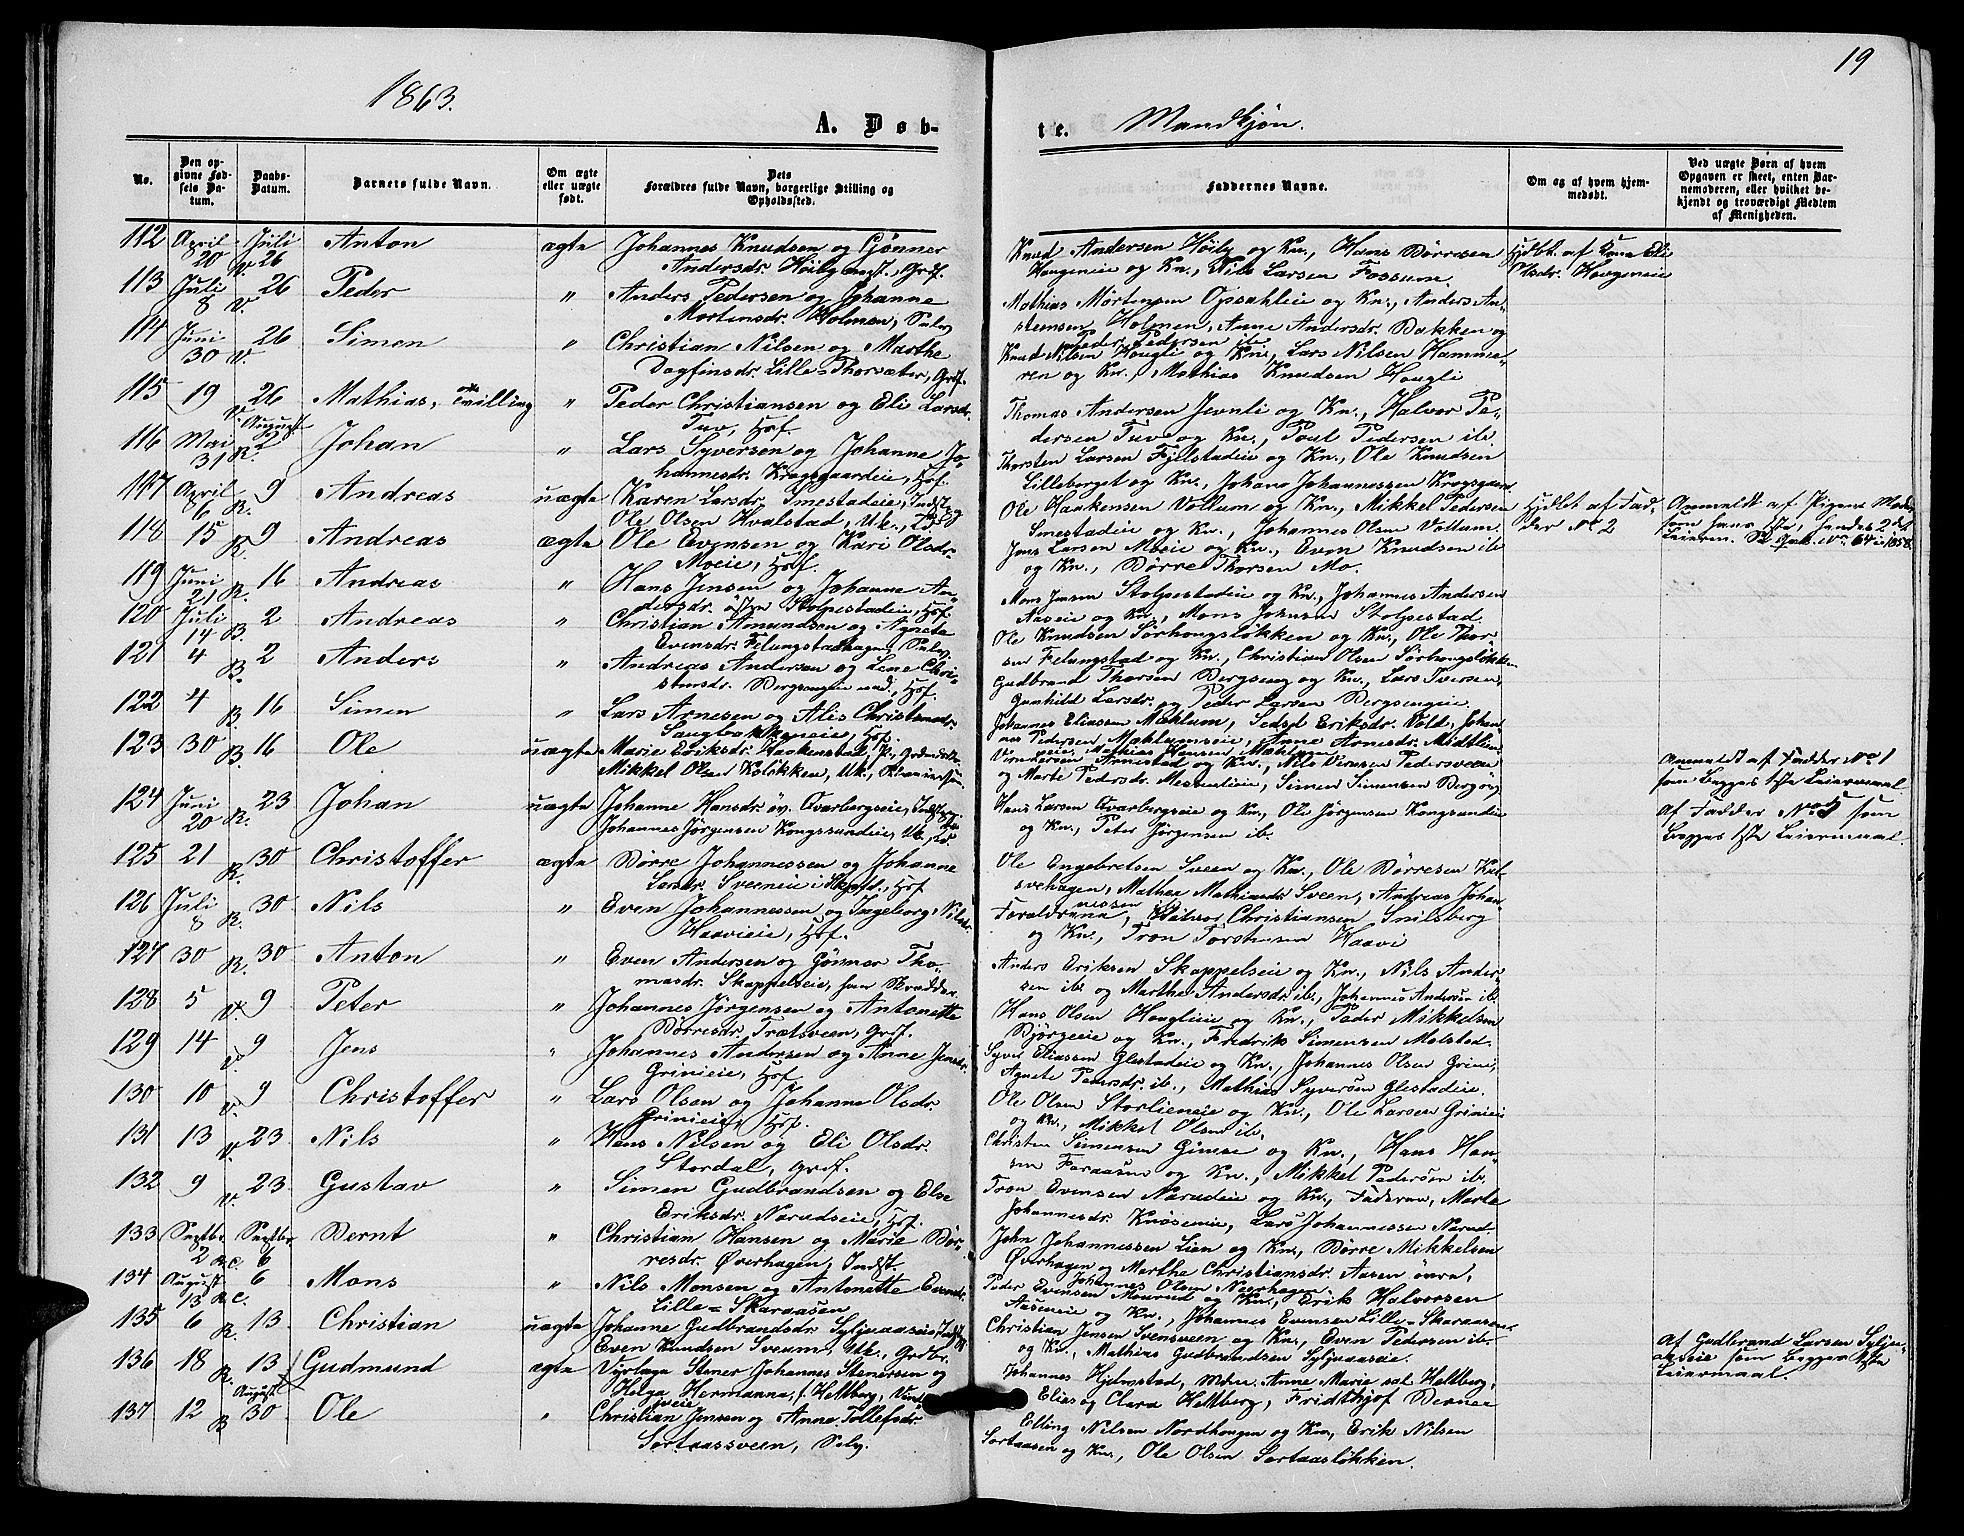 19
1863.
A. Døb-
te. Mandkjøn.
No.
Den op-
givne Fød-
sels Da-
tum.
Daabs-
Datum.
Barnets fulde Navn.
Om ægte
eller uægte
født.
Dets
Forældres fulde Navn, borgerlige Stilling og
Opholdssted.
Faddernes Navne.
Om og af hvem hjem-
medøbt.
Ved uægte Børn af hvem
Opgaven er skeet, enten Bar-
nemoderen, eller hvilket be-
kjendt og troværdigt Medlem
af Menigheden.
112 April Juli Anton ægte Johannes Knudsen og Gjønner
20 V. 26 Andersdr. Høiby
Knud Andersen Høiby og Kn., Hans Børresen
Haugeneie og Kn., Nils Larsen Fossum.
113 Juli 26 Peder " Anders Pedersen og Johanne
8 V. Mortensdr. Holmen,
Mathias Mortensen Opsahleie og Kn., Anders An-
stensen Holmen, Anne Andersdr. Bakken og
Peder Pedersen ib.
114 Juni 26 Simen " Christian Nilsen og Marthe
30 V. Dagfinsdr. Lille-Thorsæter, Grdf.
Knud Nilsen Hougli og Kn., Lars Nilsen Hamme-
ren og Kn., Mathias Knudsen Hougli
115 19 V. 26 Mathias, Tvilling " Peder Christiansen og Eli Larsdr.
Tuv, Hof.
Thomas Andersen Jevnli og Kn., Halvor Pe-
dersen Tuv og Kn., Poul Pedersen ib.
116 Mai August Johan " Lars Syversen og Johanne Jo-
31 R. 2 hannesdr. Krogsgaardeie, Hof.
Thorsten Larsen Fjelstadeie og Kn., Ole Knudsen
Lilleberget og Kn., Johans Johannessen Krogsgaard
117 April 9 Andreas uægte Karen Larsdr. Smestadeie, Indst. og
6 R. Ole Olsen Hvalstad, Uk.,
Ole Haakensen Vollum og Kn., Mikkel Pedersen
Smestadeie og Kn., Johannes Olsen Vollum.
Hjdbt af Fad-
der No 2
118 15 R. 9 Andreas ægte Ole Evensen og Kari Olsdr.
Moeie, Hof.
Jens Larsen Moeie og Kn., Even Knudsen ib
og Kn., Børre Thorsen Mo.
119 Juni 16 Andreas " Hans Jensen og Johanne An-
21 R. dersdr. østen Stolpestadeie, Hof.
Mons Jensen Stolpestadeie og Kn., Johannes Andersen
Aaseie og Kn., Mons Johnsen Stolpestad.
120 Juli 2 Andreas " Christian Amundsen og Agnete
14 B. Evensdr. Felungstadhagen,
Ole Knudsen Sørhougsløkken og Kn., Ole Thor-
sen Felungstad og Kn., Christian Olsen Sørhougsløkken
121 4 B. 2 Anders " Andreas Andersen og Lene Chri-
stensdr. Bergsengeie, Hof.
Gudbrand Thorsen Bergseng og Kn., Lars Iversen,
Gunhild Larsdr. og Peder Larsen Bergsengeie
122 4 B 16 Simen " Lars Arnesen og Alis Christensdr.
Sangbakkeneie, Hof.
Johannes Eliassen Mæhlum, Sedsel Eriksdr. Vold, Johan-
nes Pedersen Mæhlumseie, Anne Arnesdr. Midtlien
123 30 B. 16 Ole uægte Marie Eriksdr. Haakenstad P.,
Mikkel Olsen Kolikken, Uk.,
og Marte Pedersdr. Mesenlieie, Simen Simensen Bergseng
Anmeldt af Fadder No 1
som Begges 1ste Leiermaal
124 Juni 23 Johan uægte Johanne Hansdr. øv. Qvarbergseie,
20 R. Johannes Jørgensen Kongssundeie, Uk.,
Hans Larsen Qvarbergseie og Kn., Ole Jørgensen Kongsundeie
og Kn., Peter Jørgensen ib.
Af Fadder No 3 som
Begges 1ste Leiermaal.
125 21 R. 30 Christoffer ægte Børre Johannessen og Johanne
Larsdr. Sveeneie, Hof
Ole Engebretsen Sveen og Kn., Ole Børresen
Mathea Mathiasdr. Sveen, Andreas Johan-
nessen ib.
126 Juli 30 Nils " Even Johannessen og Ingeborg Nilsdr.
8 R. Haavieie, Hof.
Christiansen Snilsberg
og Kn., Tron Torstensen Haavi
127 30 R. 30 Anton " Even Andersen og Gønner Tho-
masdr. Skappelseie,
Anders Eriksen Skappelseie og Kn., Nils Ander-
sen ib. og Marthe Andersdr. ib., Johannes Andersen ib.
128 5 V. 9 Peter " Johannes Jørgensen og Antonette
Børresdr. Trætsveen, Grdf.
Hans Olsen Houglieie og Kn., Peder Mikkelsen
Bjørgeeie og Kn., Fredrik Simensen Molstad.
129 14 V. 9 Jens " Johannes Andersen og Anne Jensdr.
Grinieie, Hof
Syver Eliassen Glestadeie og Kn., Johannes Olsen Grini,
Agnete Pedersdr. ib., Mathias Syversen Glestadeie.
130 10 V. 9 Christoffer " Lars Olsen og Johanne Olsdr.
Grinieie, Hof.
Ole Olsen Storlieneie og Kn., Ole Larsen Grinieie
og Kn., Mikkel Olsen ib.
131 13 V. 23 Nils " Hans Nilsen og Eli Olsdr.
Stordal, Grdf.
Christen Simensen Gimse og Kn., Hans Han-
sen Foraasen og Kn., Mikkel Pedersen ib.
132 9 V. 23 Gustav " Simen Gudbrandsen og Else
Eriksdr. Narudseie, Hof.
Tron Evensen Narudeie og Kn., Faderen, Marte
Johannesdr. Lars Johannessen Narud.
133 Septbr. Septbr. Bernt " Christian Hansen og Marie Bør-
2 6 resdr. Øverhagen, Indst.
John Johannessen Lien og Kn., Børre Mikkelsen
Øverhagen og Marthe Christiansdr. Aasen øvre,
Johannes Olsen Nerhagen
134 August 6 Mons " Nils Monsen og Antonette Evensdr.
13 Lille-Skaraasen
Peder Evensen Maurud og Kn., Erik Halvorsen
Aaseneie og Kn., Johannes Evensen Lille-Skaraasen
135 6 R. 13 Christian uægte Johanne Gudbrandsdr. Syljuaaseie
Even Knudsen Sveum, Uk.,
Christian Jensen Svensveen og Kn., Even Pedersen ib.
og Kn., Mathias Gudbrandsen Syljuaaseie.
Af Gudbrand Larsen Sylju-
aaseie som Begges 1ste
Leiermaal.
136 18 R. 13 Gudmund ægte Stener Johannes Stenersen og
Helga Hermanna, f. Heltberg,
Johannes Hjelmstad, Anne Marie sal. Heltberg,
Elias og Clara Heltberg, Fridthjof Berner
137 12 B August 30 Ole " Christian Jensen og Anne Tollefsdr.
Sortaassveen,
Elling Nilsen Nordhougen og Kn., Erik Nilsen
Sortaasen og Kn., Ole Olsen Sortaasløkken.